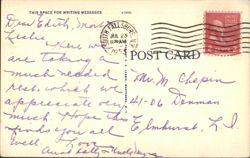 THIS SPACE FOR WRITING MESSAGES
Dear Edith,
Leslie
Here we
are taking a
much needed
rest, which we
appreciate very
much. Hope this
finds you all
well. Love
Aunt
SOUTH FALLSBURG
POST CARD
Mr. M Chapin
41-06 Denman
Elmhurst, L I